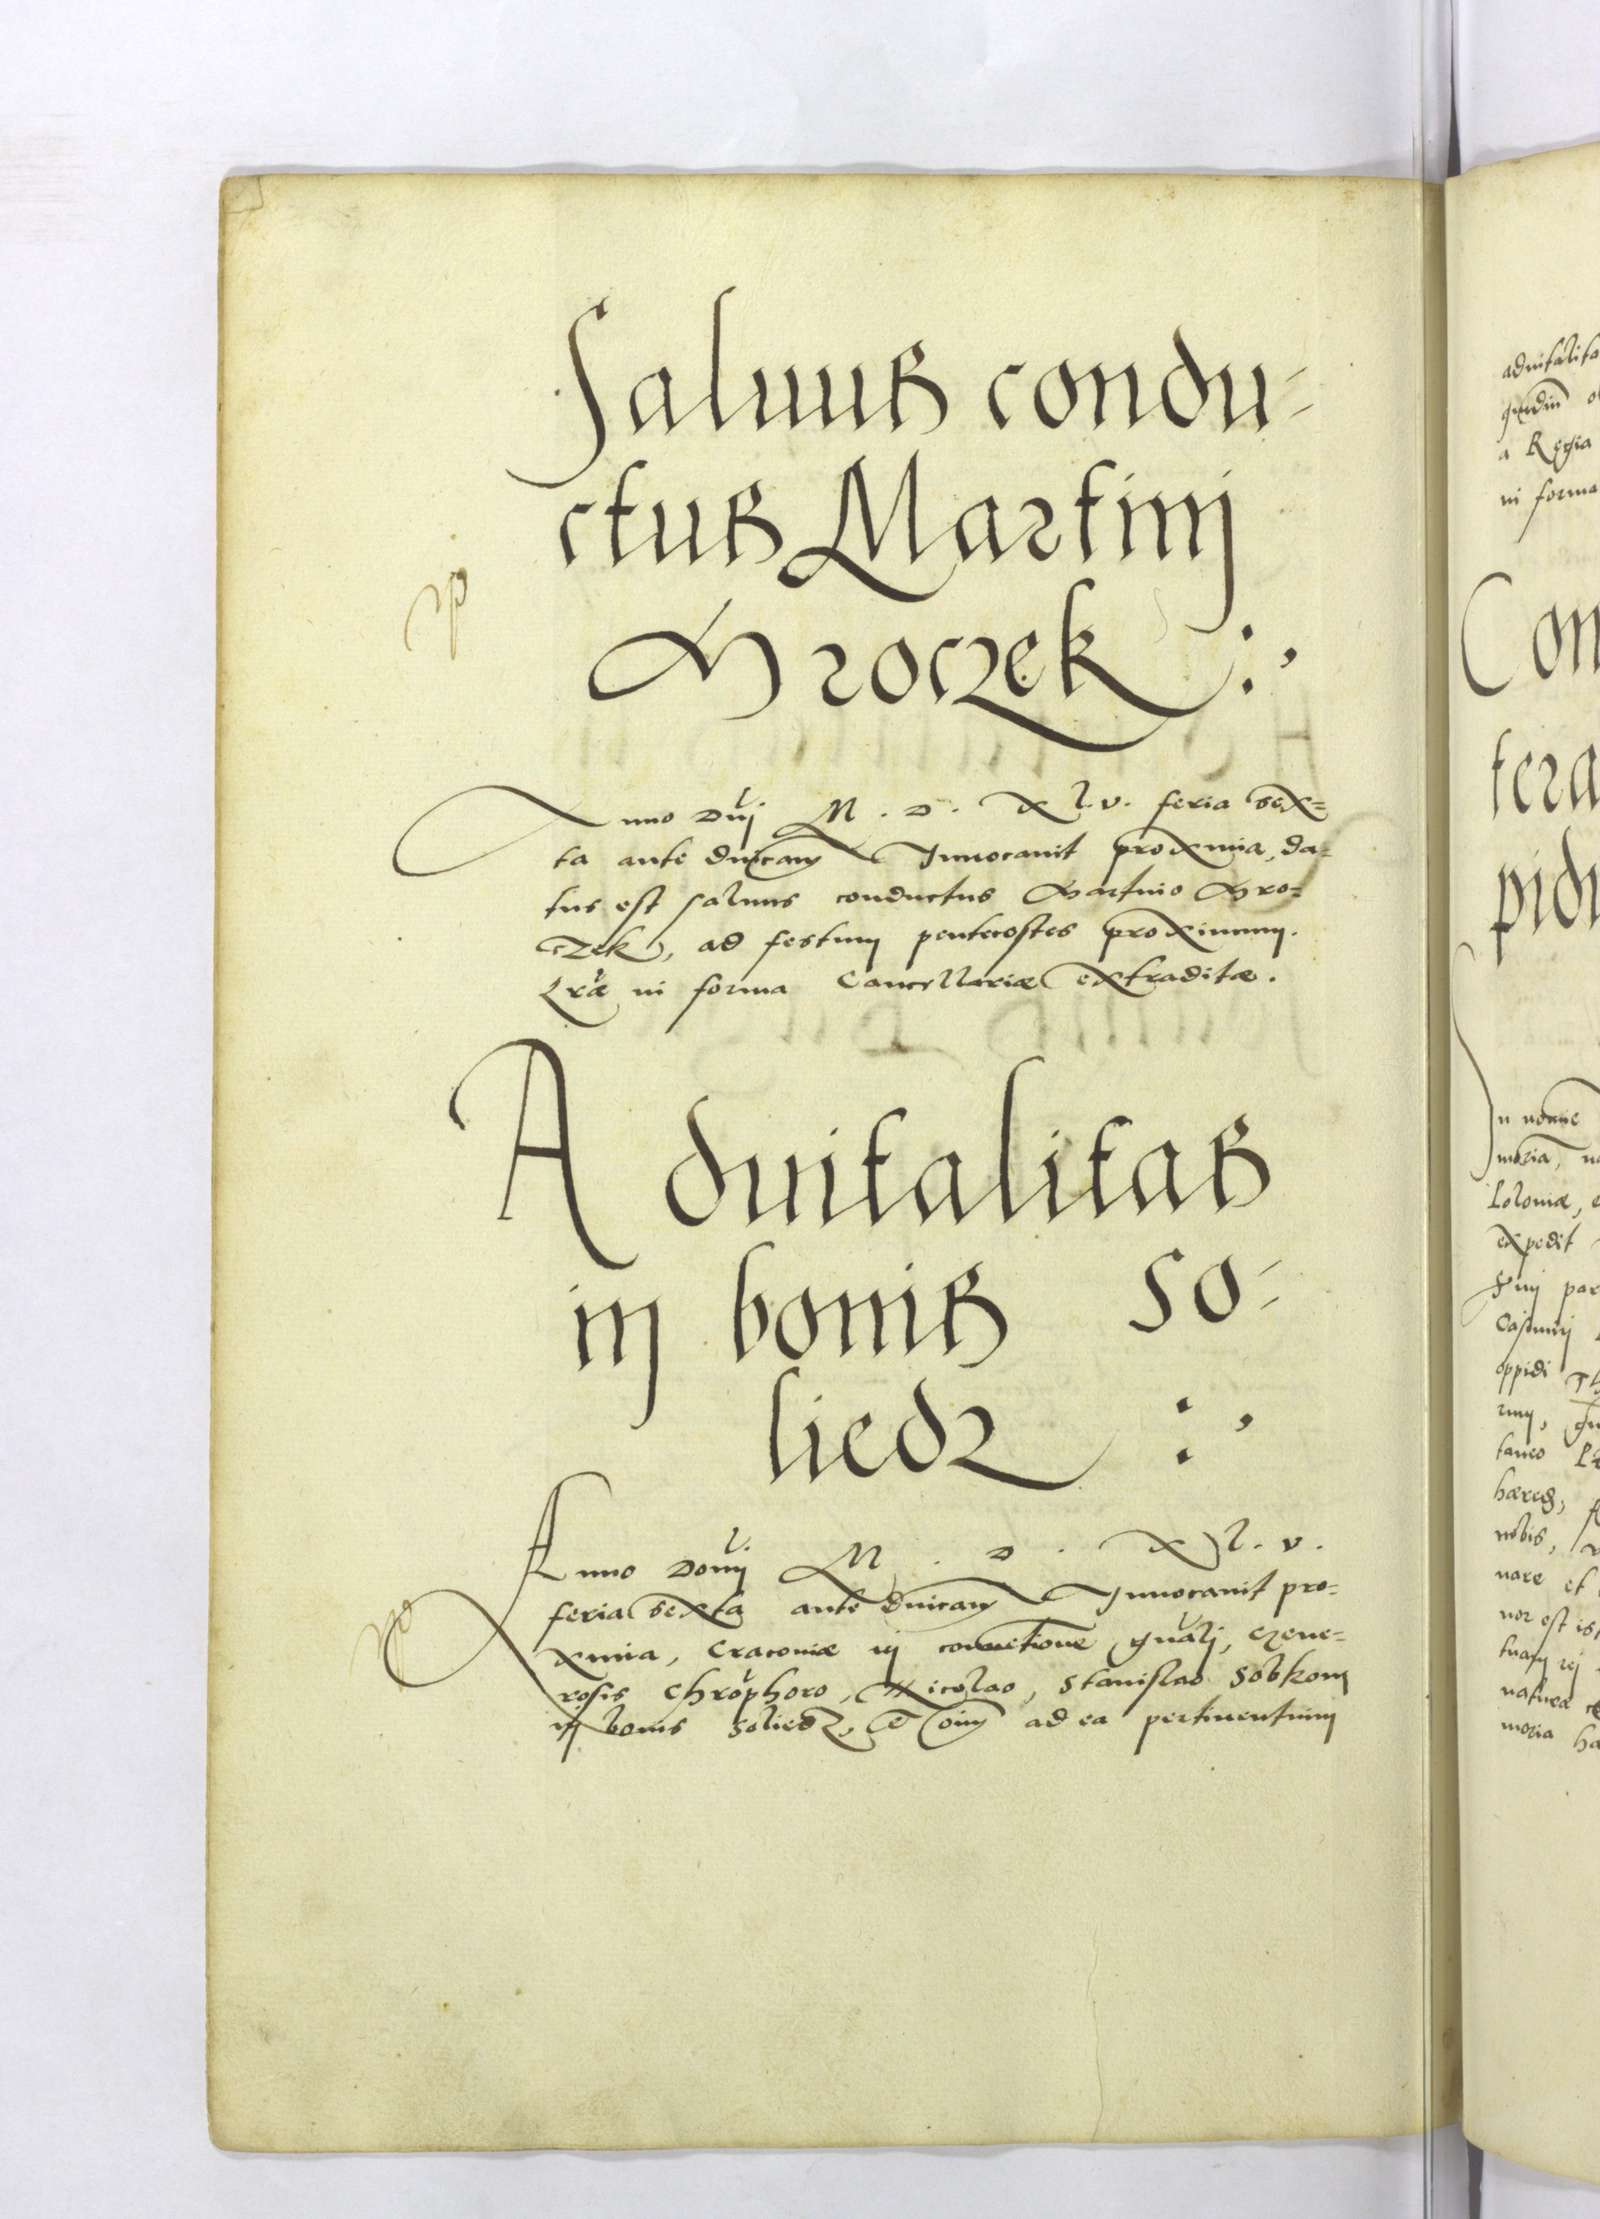 Saluus condu-
ctus Martinj
Mroczek :,
Anno Dnj M . D . X l. v . feria sex=
ta ante dnicam Inuocauit proxima, da=
tus est saluus conductus Martino Mro=
czek, ad festum pentecostes proximum.
Lræ in forma Cancellariæ extraditæ.
Aduitalitas
in bonis So-
liedz :,
Anno Donj M . D . X l . v .
feria sexta ante dnicam Inuocauit pro-
xima, Craconiæ in conuetione gnalj, Gene=
rosis Chrophoro, Nicolao, Stanislao Sobkom
in bonis Soliedz, et oim ad ea pertinentium
aduitalita
a Regia
in forma
Con
tera
pidi
In
moria,
Poloniæ,
expedit
par
Casimirj
oppidi
taneo
hæred,
nobis,
nare et
nor est
tuam rej
moria ha